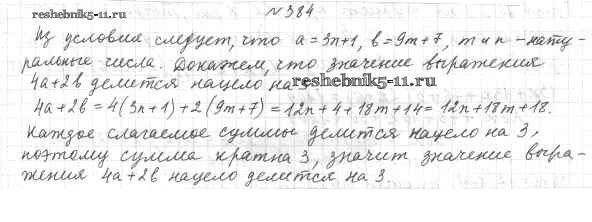 reshebnik5-11.ru
№384
Из условия следует, что a=3n+1, b=9m+7, m и n - нату-
ральные числа. Докажем, что значение выражения
4a+2b делится нацело на 3.
reshebnik5-11.ru
4a+2b=4(3n+1)+2(9m+7)=12n+4+18m+14=12n+18m+18.
Каждое слагаемое суммы делится нацело на 3,
поэтому сумма кратна 3, значит значение выра-
жения 4a+2b нацело делится на 3.